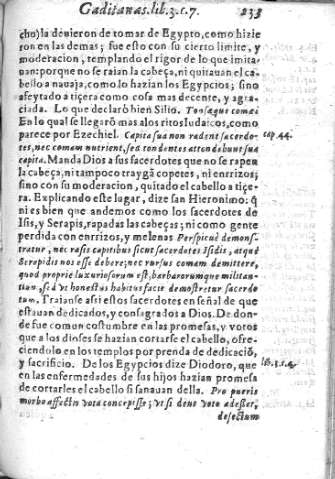 Gaditanas. lib. 3. c. 7. 233
cho) la deuieron de tomar de Egypto, como hizie
ron en las demas; fue esto con su cierto limite, y
moderacion, templando el rigor de lo que imita-
uan: porque no se raian la cabeça, ni quitauan el ca-
bello a nauaja, como lo hazian los Egypcios; sino
afeytado a tiçera como cosa mas decente, y agra-
ciada. Lo que declarò bien Silio. Tonsæque comæ:
En lo qual se llegarõ mas a los ritos Iudaicos, como
parece por Ezechiel. Capita sua non radent sacerdo- cap. 44.
tes, nec comam nutrient, sed tondentes attondebunt sua
capita. Manda Dios a sus sacerdotes que no se rapen
la cabeça, ni tampoco traygã copetes, ni enrrizos;
sino con su moderacion, quitado el cabello a tiçe-
ra. Explicando este lugar, dize san Hieronimo: q̃
ni es bien que andemos como los sacerdotes de
Isis, y Serapis, rapadas las cabeças; ni como gente
perdida con enrrizos, y melenas Perspicuè demons-
tratur, nec rasis capitibus sicut sacerdotes Isidis, atquè
Serapidis nos esse debere; nec rursus comam demittere,
quod propriè luxuriosorum est, barbarorumque militan-
tium, sed vt honestus habitus facie demostretur sacerdo
tum. Traianse assi estos sacerdotes en señal de que
estauan dedicados, y consagrados a Dios. De don-
de fue comun costumbre en las promesas, y votos
que a los dioses se hazian cortarse el cabello, ofre-
ciendolo en los templos por prenda de dedicaciõ,
y sacrificio. De los Egypcios dize Diodoro, que lib. 1. c. 4.
en las enfermedades de sus hijos hazian promesa
de cortarles el cabello si sanauan della. Pro pueris
morbo affectis vota concepisse; vt si deus voto adesset,
defectum